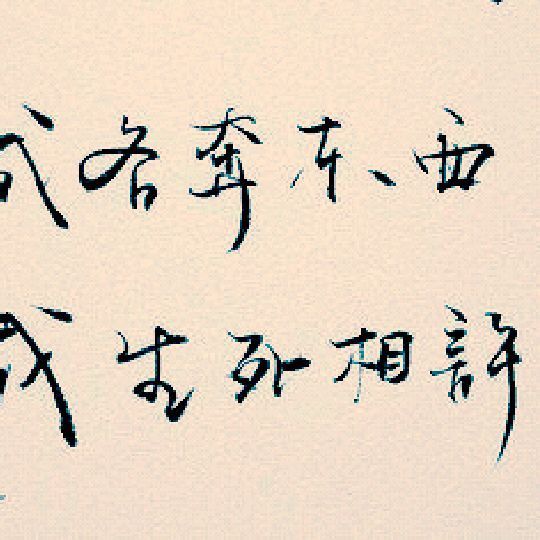 各奔东西
生死相許